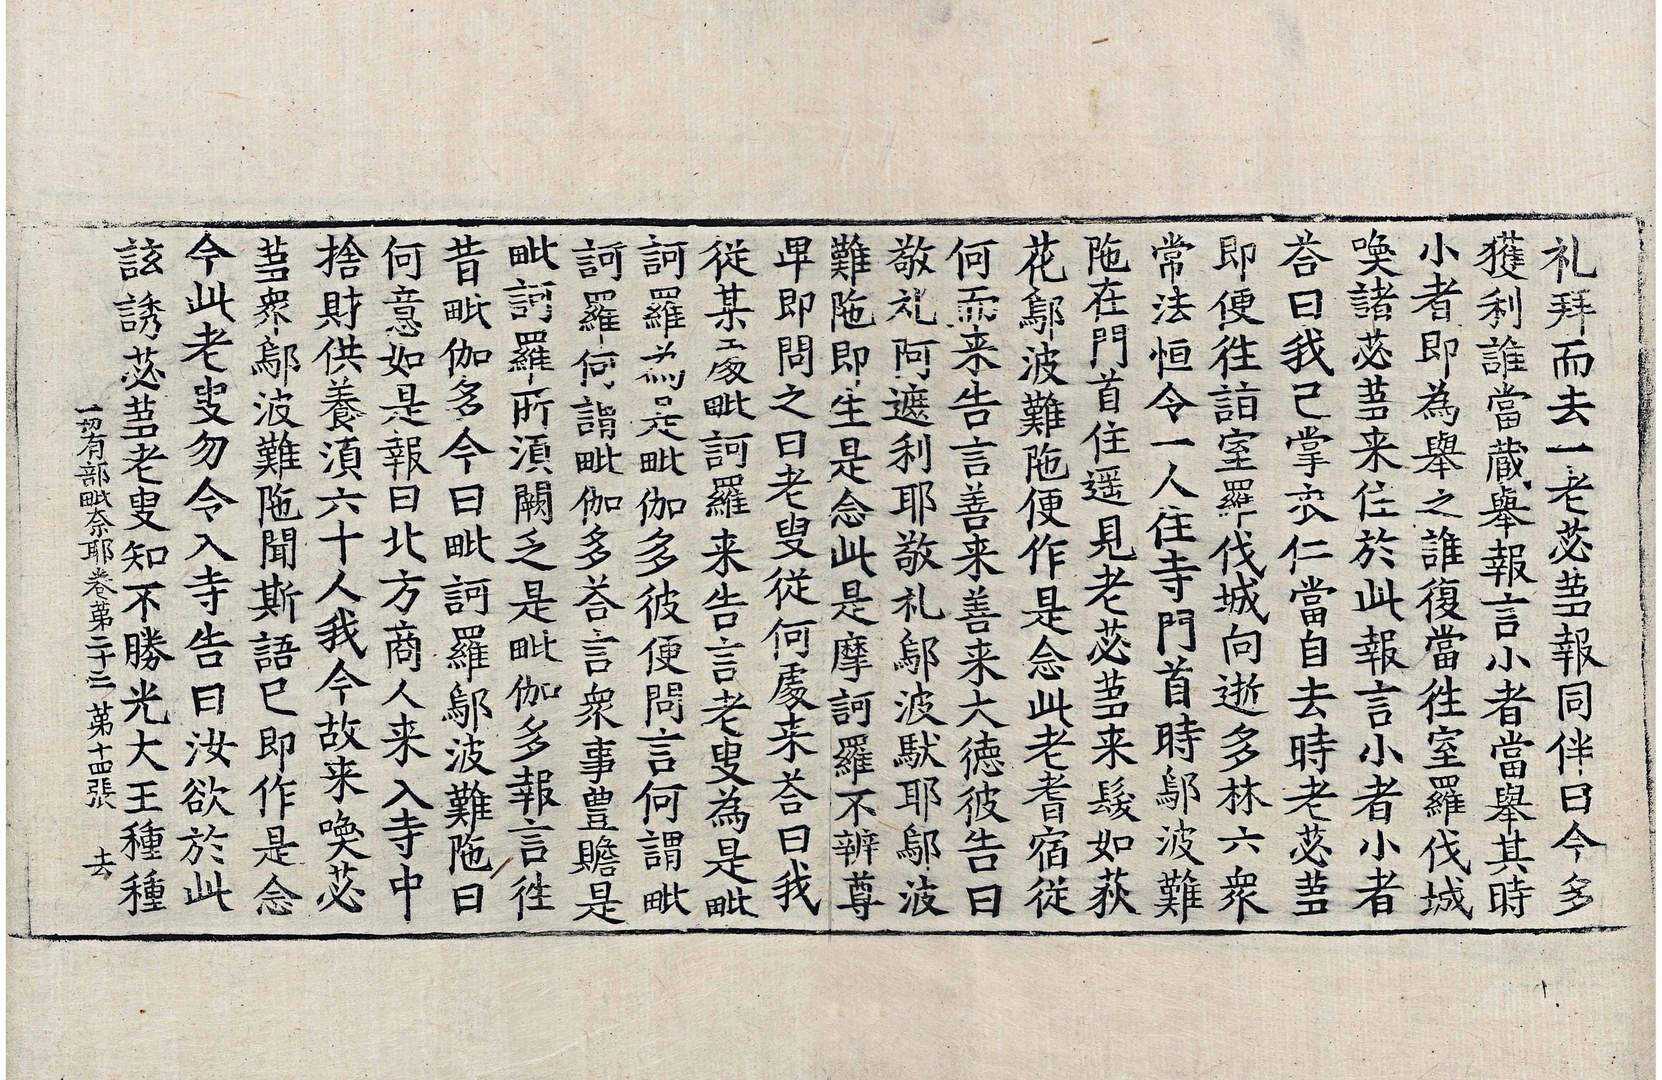 礼拜而去一老苾蒭報同伴曰今多
獲利誰當藏舉報言小者當舉其時
小者即為舉之誰復當徃室羅伐城
喚諸苾蒭来住於此報言小者小者
荅曰我已掌衣仁當自去時老苾蒭
即便徃詣室羅伐城向逝多林六衆
常法恒令一人住寺門首時鄔波難
陁在門首住遥見老苾蒭来髮如荻
花鄔波難陁便作是念此老耆宿從
何而来告言善来善来大德彼告曰
敬礼阿遮利耶敬礼鄔波馱耶鄔波
難陁即生是念此是摩訶羅不辨尊
卑即問之曰老叟從何處来荅曰我
從某處毗訶羅来告言老叟為是毗
訶羅為是毗伽多彼便問言何謂毗
訶羅何謂毗伽多荅言衆事豊贍是
毗訶羅所湏闕乏是毗伽多報言徃
昔毗伽多今曰毗訶羅鄔波難陁曰
何意如是報曰北方商人来入寺中
捨財供養湏六十人我今故来喚苾
蒭衆鄔波難陁聞斯語已即作是念
今此老叟勿令入寺告曰汝欲於此
該誘苾蒭老叟知不勝光大王種種
一切有部毗奈耶卷第二十二 第十四張 去